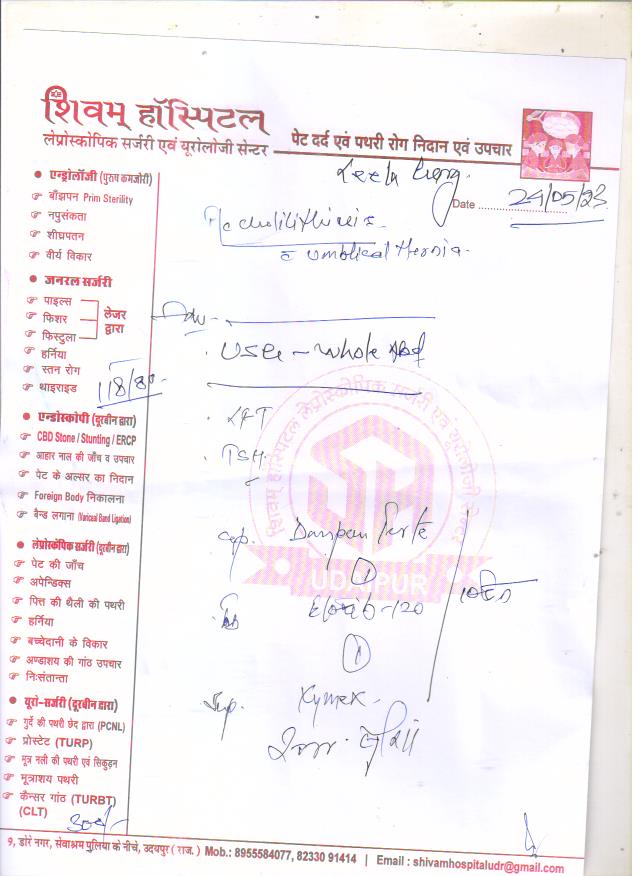 शिवम् हॉस्पिटल
लेप्रोस्कोपिक सर्जरी एवं यूरोलोजी सेन्टर
पेट दर्द एवं पथरी रोग निदान एवं उपचार
Leela
Date ........ 24/05/23
एन्ड्रोलॉजी (पुरुष कमजोरी)
बाँझपन Prim Sterility
नपुसंकता
शीघ्रपतन
वीर्य विकार
umblical Hernia
जनरल सर्जरी
पाइल्स
फिशर
फिस्टुला
लेजर द्वारा
हर्निया
स्तन रोग
थाइराइड
118/80
USG - Whole Abd
LFT
TSH
एण्डोस्कोपी (दूरबीन द्वारा)
CBD Stone / Stunting / ERCP
आहार नाल की जाँच व उपचार
पेट के अल्सर का निदान
Foreign Body निकालना
बैन्ड लगाना (Variceal Band Ligation)
शिवम् हॉस्पिटल लेप्रोस्कोपिक सर्जरी एवं यूरोलोजी सेन्टर
UDAIPUR
लेप्रोस्कोपिक सर्जरी (दूरबीन द्वारा)
पेट की जाँच
अपेन्डिक्स
पित्त की थैली की पथरी
हर्निया
बच्चेदानी के विकार
अण्डाशय की गांठ उपचार
निःसंतान्ता
Cap.
①
-120
①
Syp. Xymex
यूरो-सर्जरी (दूरबीन द्वारा)
गुर्दे की पथरी छेद द्वारा (PCNL)
प्रोस्टेट (TURP)
मूत्र नली की पथरी एवं सिकुड़न
मूत्राशय पथरी
कैन्सर गांठ (TURBT)
(CLT)
300/-
9, डोरे नगर, सेवाश्रम पुलिया के नीचे, उदयपुर ( राज. ) Mob.: 8955584077, 82330 91414 | Email : shivamhospitaludr@gmail.com